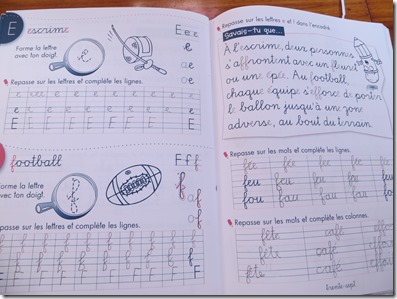 E escrime
E e e
Forme la lettre
avec ton doigt.
e
e
ae
Repasse sur les lettres et complète les lignes.
e e e e e e e e
e e e e e e e e
E E E E E E E E
football
F f f
Forme la lettre
avec ton doigt.
f
f
af
of
Repasse sur les lettres et complète les lignes.
f f f f f f f f
F F F F F F F
Repasse sur les lettres e et f dans l'encadré.
Savais-tu que...
À l'escrime, deux personnes
s'affrontent avec un fleuret
ou une épée. Au football,
chaque équipe s'efforce de porter
le ballon jusqu'à une zone
adverse, au bout du terrain.
Repasse sur les mots et complète les lignes.
fée fée fée fée
feu feu feu feu feu
fou fou fou fou
Repasse sur les mots et complète les colonnes.
fête café effort
fête café
fête café
trente-sept